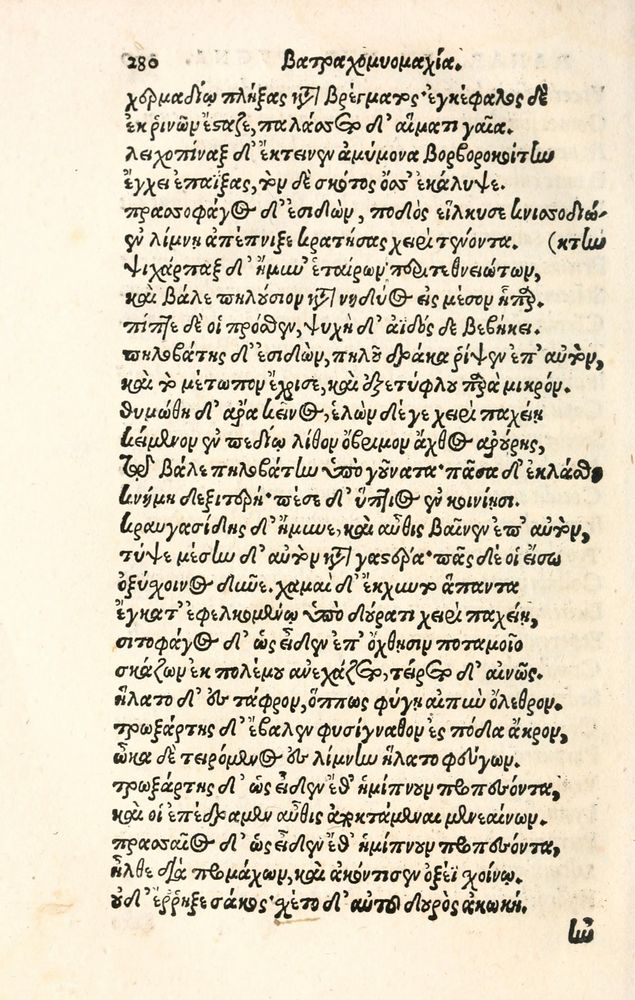 280 Βατραχομυομαχία.
χερμαδίῳ πλήξας κτ βρέγματος· ἐγκέφαλος δὲ
ἐκ ῥινῶν ἔσταζε, παλάσσετο δ' αἵματι γαῖα.
λειχοπίναξ δ' ἔκτεινεν ἀμύμονα βορβοροκοίτην
ἔγχει ἐπαΐξας, τὸν δὲ σκότος ὄσσ' ἐκάλυψε.
πρασσοφάγος δ' ἐσιδὼν, ποδὸς εἵλκυσε κνισσοδιώ-
ἐν λίμνῃ ἀπέπνιξε κρατήσας χειρὶ τένοντα. (κτην
ψιχάρπαξ δ' ἤμυν' ἑτάρων περὶ τεθνειώτων,
καὶ βάλε πηλούσιον κτ νηδύος ἐς μέσον ἧπαρ.
πίπτε δέ οἱ πρόσθεν, ψυχὴ δ' ἀϊδόσδε βεβήκει.
πηλοβάτης δ' ἐσιδὼν, πηλοῦ δράκα ῥίψεν ἐπ' αὐτὸν,
καὶ τὸ μέτωπον ἔχρισε, καὶ ἐξετύφλου παρὰ μικρόν.
θυμώθη δ' ἄρα κεῖνος, ἑλὼν δέ γε χειρὶ παχείῃ
κείμενον ἐν πεδίῳ λίθον ὄβριμον ἄχθος ἀρούρης,
τῷ βάλε πηλοβάτην ὑπὸ γούνατα· πᾶσα δ' ἐκλάσθη
κνήμη δεξιτερή· πέσε δ' ὕπτιος ἐν κονίῃσι.
κραυγασίδης δ' ἤμυνε, καὶ αὖθις βαῖνεν ἐπ' αὐτὸν,
τύψε μέσην δ' αὐτὸν κτ γαστέρα· πᾶς δέ οἱ εἴσω
ὀξύσχοινος δῦνε. χαμαὶ δ' ἔκχυντο ἅπαντα
ἔγκατ' ἐφελκομένῳ ὑπὸ δούρατι χειρὶ παχείῃ,
σιτοφάγος δ' ὡς εἶδεν ἐπ' ὄχθῃσιν ποταμοῖο
σκάζων ἐκ πολέμου ἀνεχάζετο, τείρετο δ' αἰνῶς.
ἥλατο δ' ἐς τάφρον, ὅππως φύγῃ αἰπὺν ὄλεθρον.
τρωξάρτης δ' ἔβαλεν φυσίγναθον ἐς πόδα ἄκρον,
ὦκα δὲ τειρόμενος ἐς λίμνην ἥλατο φεύγων.
τρωξάρτης δ' ὡς εἶδεν ἔθ' ἡμίπνουν προπεσόντα,
καὶ οἱ ἐπέδραμεν αὖθις ἀποκτάμεναι μενεαίνων.
πρασσαῖος δ' ὡς εἶδεν ἔθ' ἡμίπνουν προπεσόντα,
ἦλθε διὰ προμάχων, καὶ ἀκόντισεν ὀξέϊ σχοίνῳ.
οὐδ' ἔρρηξε σάκος· σχέτο δ' αὐτοῦ δουρὸς ἀκωκή.
ἦν